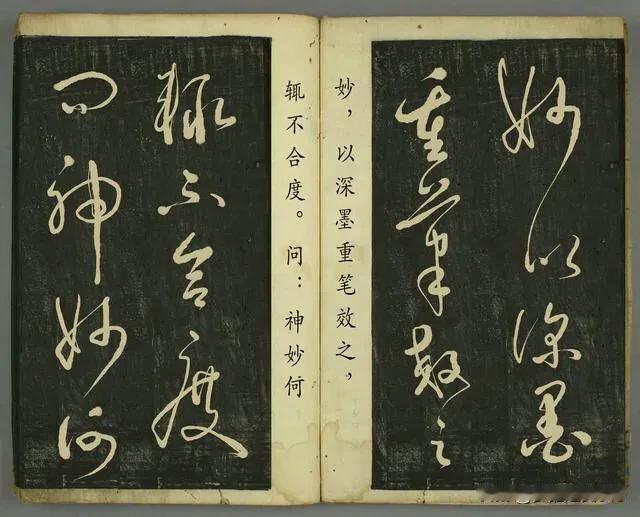 妙以深墨
重笔效之
妙，以深墨重笔效之，
辄不合度。问：神妙何
辄不合度
问神妙何